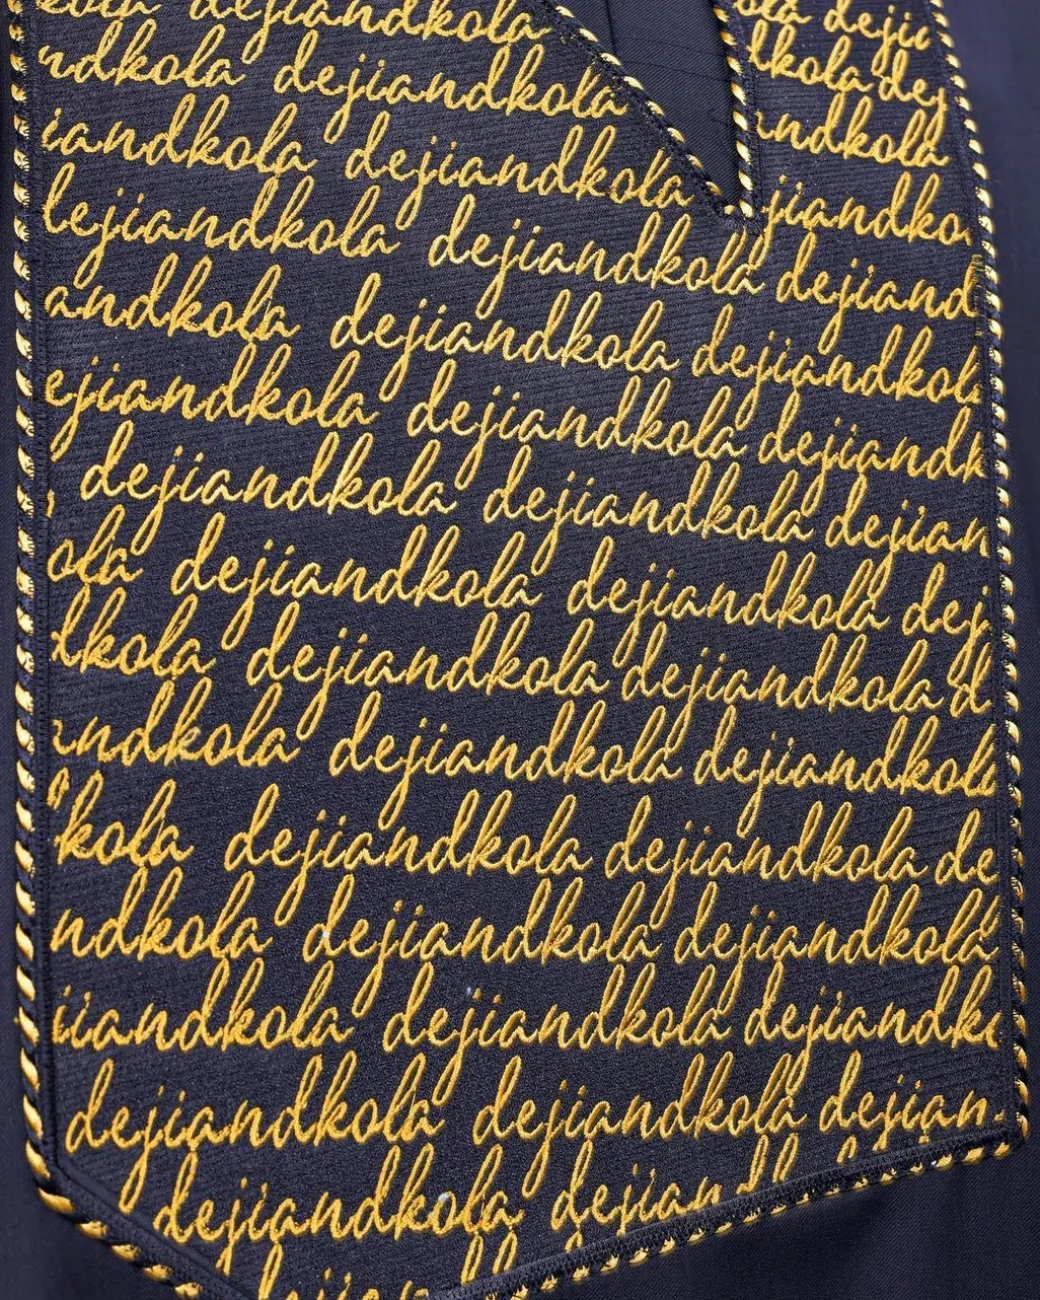 kola dejiandkola ola dejii
ndkola dejiandkola dkola dej
iandkola dejiandkola andkola
lejiandkola dejiandkola jiandko
andkola dejiandkola dejiand
ejiandkola dejiandkola dejiandkol
dejiandkola dejiandkola dejiandk
ola dejiandkola dejiandkola dejian
dkola dejiandkola dejiandkola dej
andkola dejiandkola dejiandkola d
kola dejiandkola dejiandkola
ndkola dejiandkola dejiandkola de
iandkola dejiandkola dejiandkola
dejiandkola dejiandkola dejiandko
dejiandkola dejiandkola dejian
dejiandkola dejiand